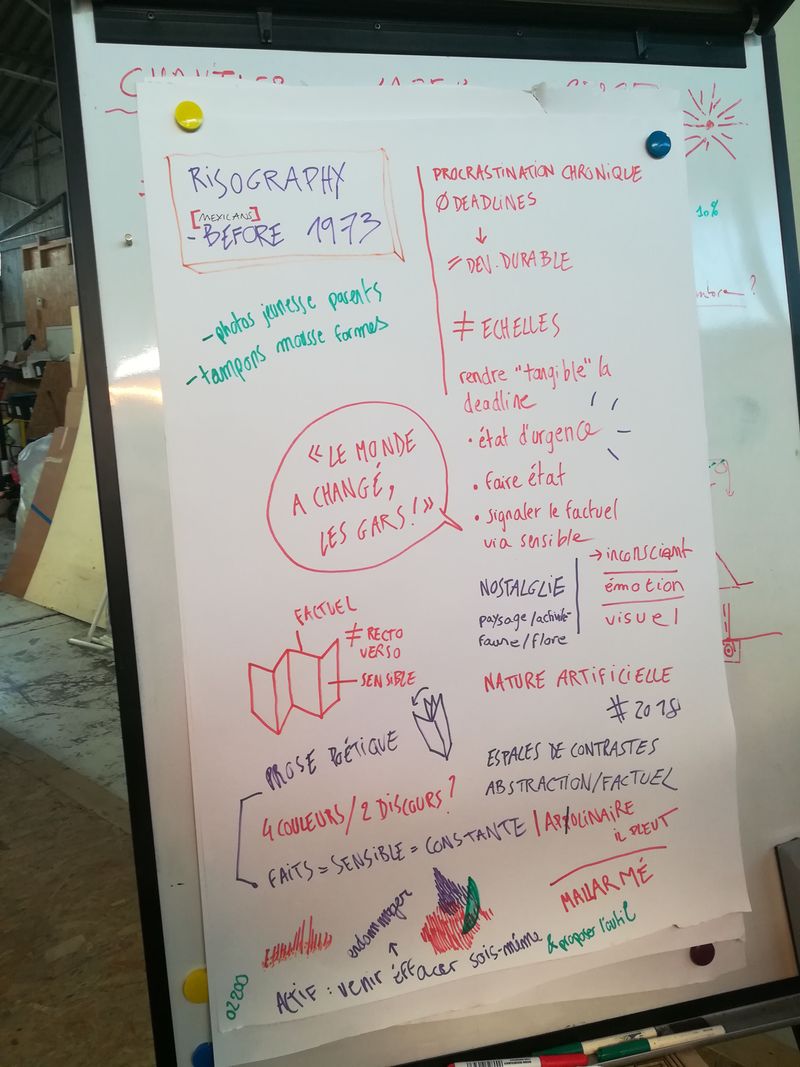 RISOGRAPHY
[MEXICANS]
- BEFORE 1973
- photos jeunesse parents
- tampons mousse formes
PROCRASTINATION CHRONIQUE
Ø DEADLINES
↓
= DEV. DURABLE
≠ ECHELLES
rendre "tangible" la
deadline
• état d'urgence
• faire état
• signaler le factuel
via sensible
« LE MONDE
A CHANGÉ,
LES GARS ! »
NOSTALGIE
paysage/
faune/flore
→ inconscient
émotion
visuel
FACTUEL
≠ RECTO
VERSO
SENSIBLE
NATURE ARTIFICIELLE
# 2018
PROSE POÉTIQUE
4 COULEURS / 2 DISCOURS ?
FAITS = SENSIBLE = CONSTANTE
ESPALES DE CONTRASTES
ABSTRACTION/FACTUEL
APOLINAIRE
IL PLEUT
MALLARMÉ
endommager
↑
ACTIF : venir éffacer sois-même & proposer l'outil
02200
CHANTIER
10%
?